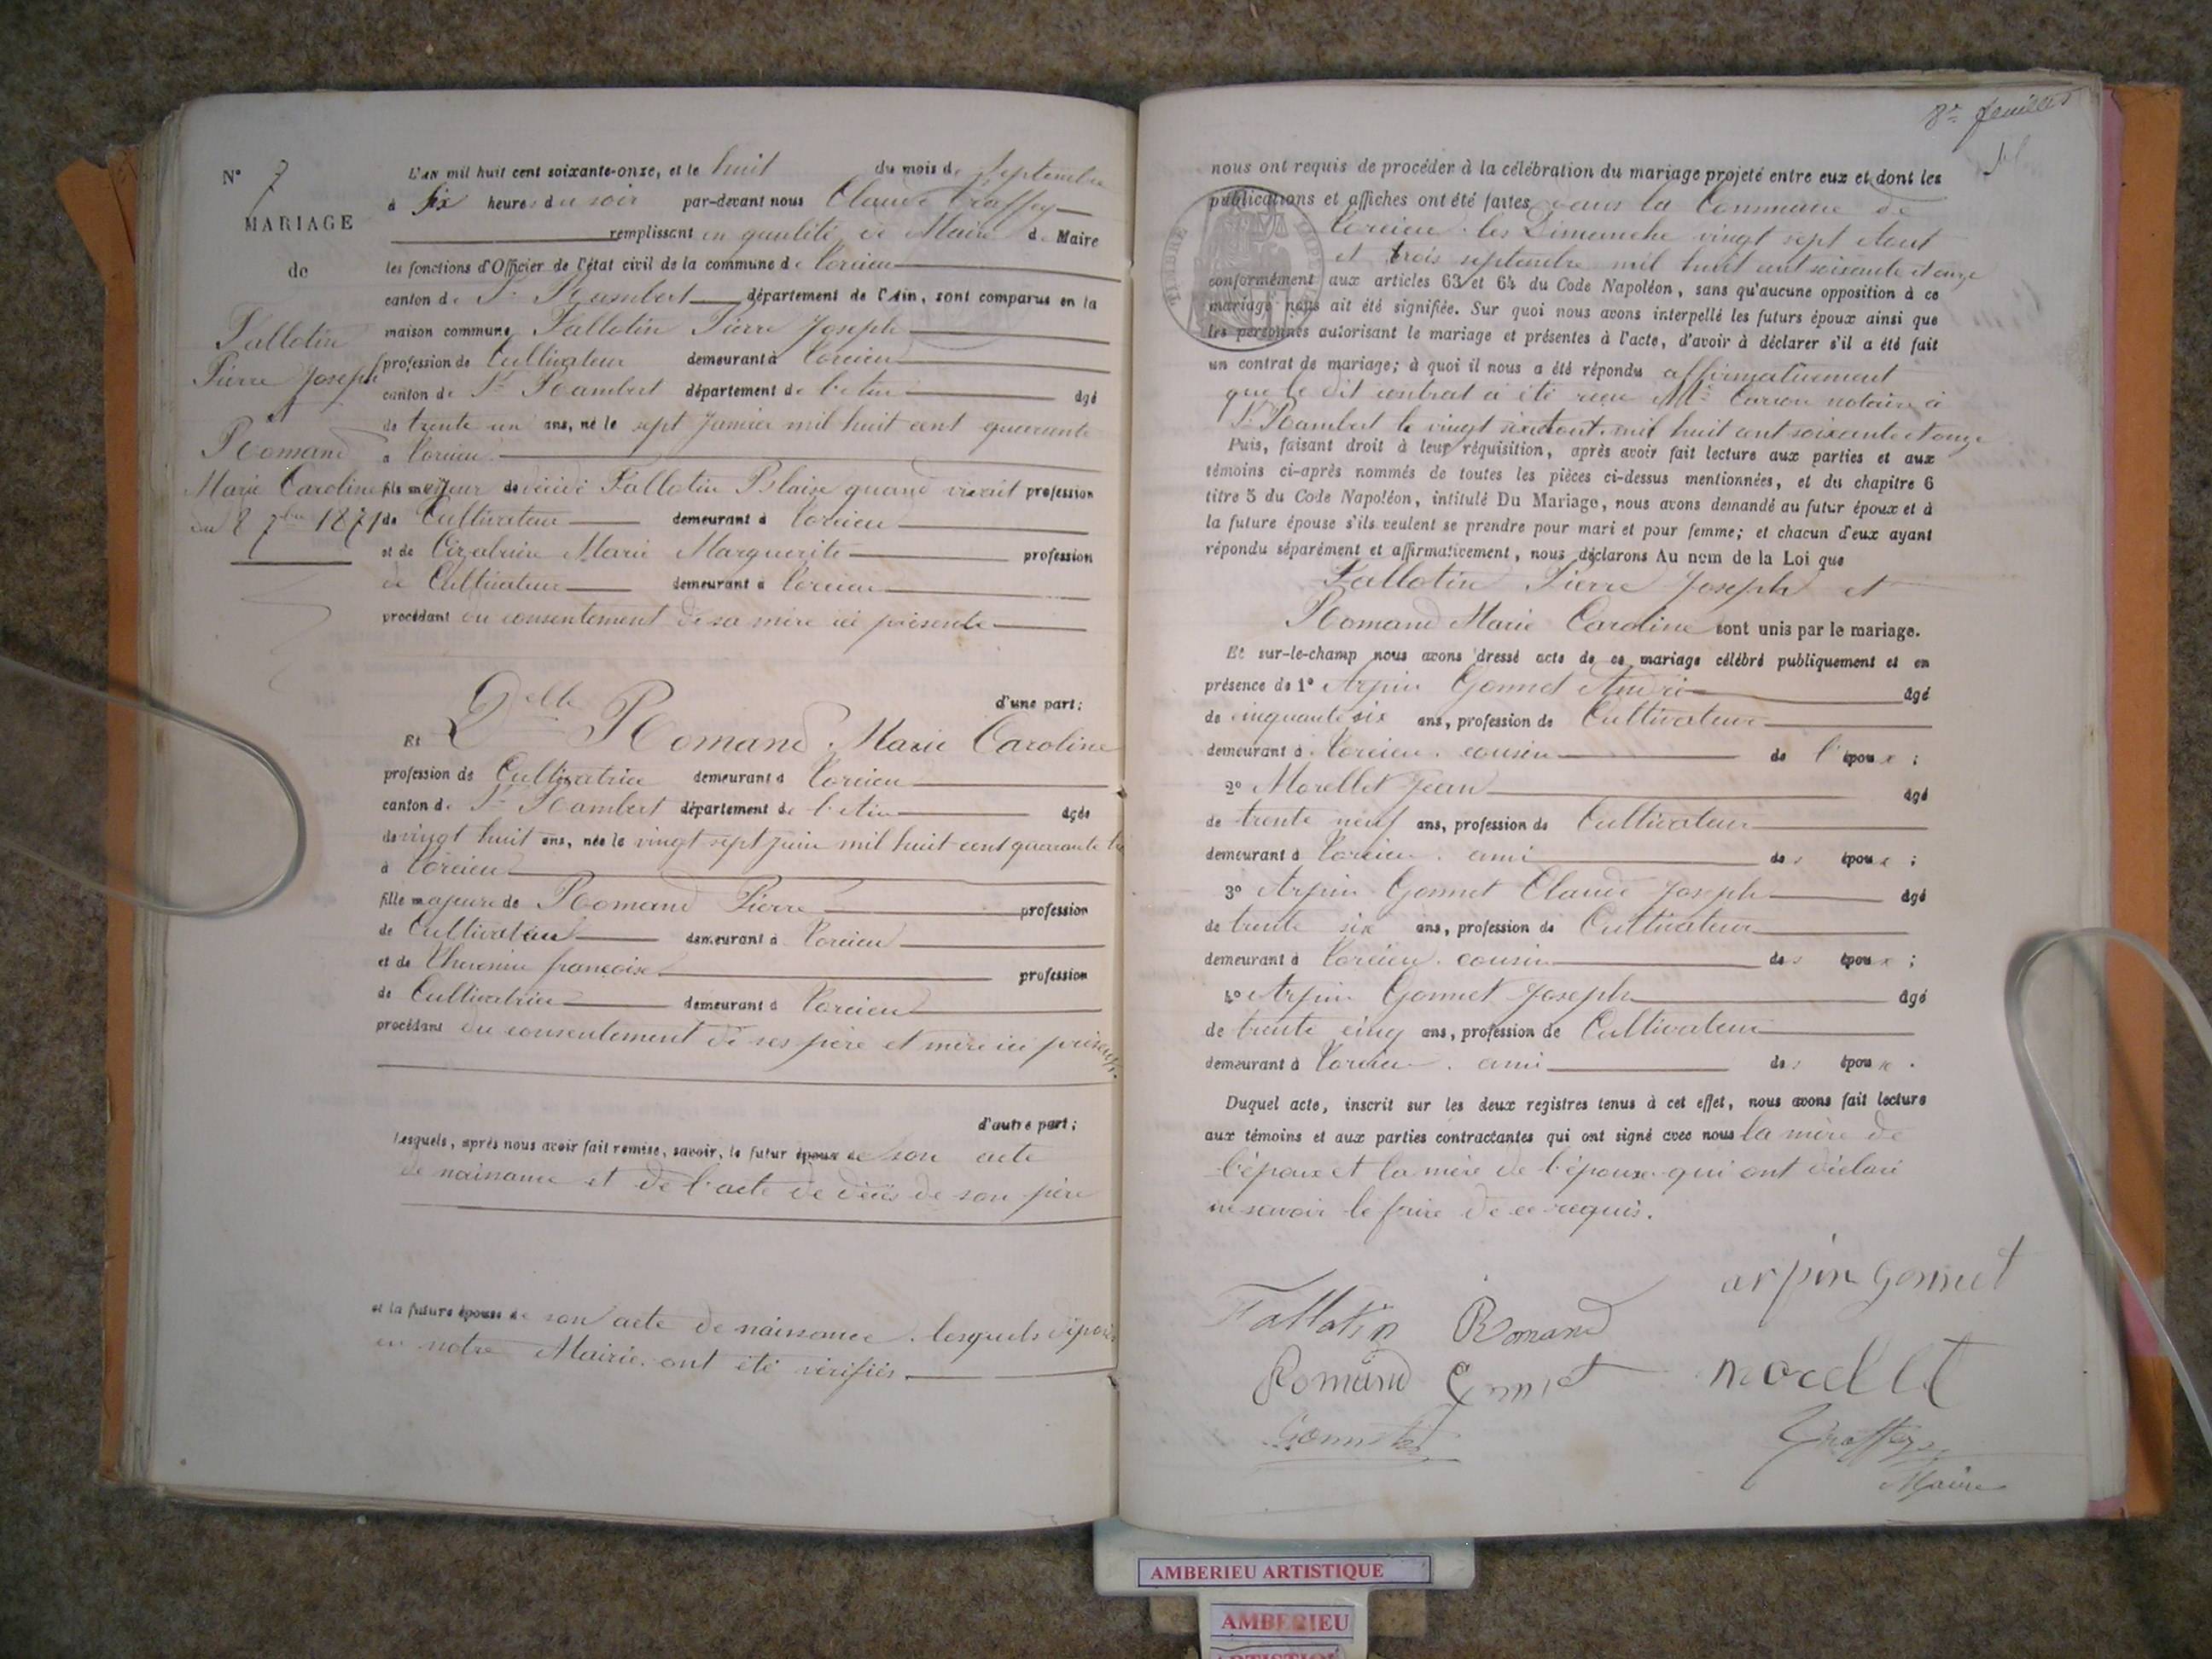 N° 7
MARIAGE
de
Fallotin
Pierre Joseph
et
Romand
Marie Caroline
du 8 7bre 1871
L'AN mil huit cent soixante-onze, et le huit du mois de Septembre
à six heures du soir par-devant nous Claude
remplissant en qualité de Maire de Maire
les fonctions d'Officier de l'état civil de la commune de Torcieu
canton de St Rambert département de l'Ain, sont comparus en la
maison commune, Fallotin Pierre Joseph
profession de Cultivateur demeurant à Torcieu
canton de St Rambert département de l'Ain âgé
de trente un ans, né le sept Janvier mil huit cent quarante
à Torcieu
fils majeur de décédé Fallotin Blaise quand vivait profession
de Cultivateur demeurant à Torcieu
et de Marie Marguerite profession
de Cultivateur demeurant à Torcieu
procédant du consentement de sa mère ici présente
d'une part;
Et Delle Romand Marie Caroline
profession de Cultivatrice demeurant à Torcieu
canton de St Rambert département de l'Ain âgée
de vingt huit ans, née le vingt sept juin mil huit cent quarante
à Torcieu
fille majeure de Romand Pierre profession
de Cultivateur demeurant à Torcieu
et de françoise profession
de Cultivatrice demeurant à Torcieu
procédant du consentement de ses père et mère ici présents.
d'autre part;
Lesquels, après nous avoir fait remise, savoir, le futur époux de son acte
de naissance et de l'acte de décès de son père
et la future épouse de son acte de naissance. lesquels déposés
en notre Mairie. ont été vérifiés.
8e feuillet
nous ont requis de procéder à la célébration du mariage projeté entre eux et dont les
publications et affiches ont été faites dans la Commune de
Torcieu. les Dimanche vingt sept Aout
et trois septembre mil huit cent soixante et onze
conformément aux articles 63 et 64 du Code Napoléon, sans qu'aucune opposition à ce
mariage nous ait été signifiée. Sur quoi nous avons interpellé les futurs époux ainsi que
les personnes autorisant le mariage et présentes à l'acte, d'avoir à déclarer s'il a été fait
un contrat de mariage; à quoi il nous a été répondu affirmativement
que le dit contrat a été reçu Me notaire à
St Rambert le vingt six Aout mil huit cent soixante et onze
Puis, faisant droit à leur réquisition, après avoir fait lecture aux parties et aux
témoins ci-après nommés de toutes les pièces ci-dessus mentionnées, et du chapitre 6
titre 5 du Code Napoléon, intitulé Du Mariage, nous avons demandé au futur époux et à
la future épouse s'ils veulent se prendre pour mari et pour femme; et chacun d'eux ayant
répondu séparément et affirmativement, nous déclarons Au nom de la Loi que
Fallotin Pierre Joseph et
Romand Marie Caroline sont unis par le mariage.
Et sur-le-champ nous avons dressé acte de ce mariage célébré publiquement et en
présence de 1° Arpin Gonnet André âgé
de cinquante six ans, profession de Cultivateur
demeurant à Torcieu. cousin de l'époux;
2° Morellet Jean âgé
de trente neuf ans, profession de Cultivateur
demeurant à Torcieu. ami des époux;
3° Arpin Gonnet Claude Joseph âgé
de trente six ans, profession de Cultivateur
demeurant à Torcieu. cousin des époux;
4° Arpin Gonnet Joseph âgé
de trente cinq ans, profession de Cultivateur
demeurant à Torcieu. ami des époux.
Duquel acte, inscrit sur les deux registres tenus à cet effet, nous avons fait lecture
aux témoins et aux parties contractantes qui ont signé avec nous la mère de
l'époux et la mère de l'épouse qui ont déclaré
ne savoir le faire de ce requis.
arpin gonnet
Fallotin Romand
Romand Gonnet morellet
Gonnet
Maire
AMBERIEU ARTISTIQUE
AMBERIEU
ARTISTIQUE